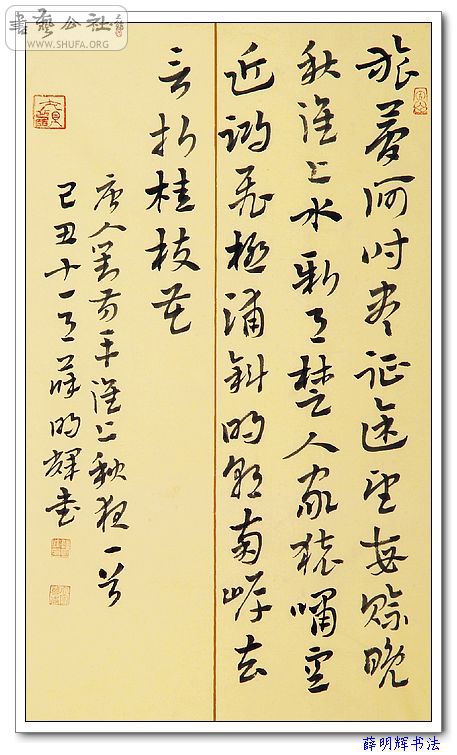 書藝公社
WWW.SHUFA.ORG
旅夢何时尽征途望每賒晚
秋淮上水新月楚人家猿嘯空
近鸿飛極浦斜明朝南岸去
言折桂枝花
唐人劉方平淮上秋夜一首
己丑十一月薛明輝書
薛明辉书法